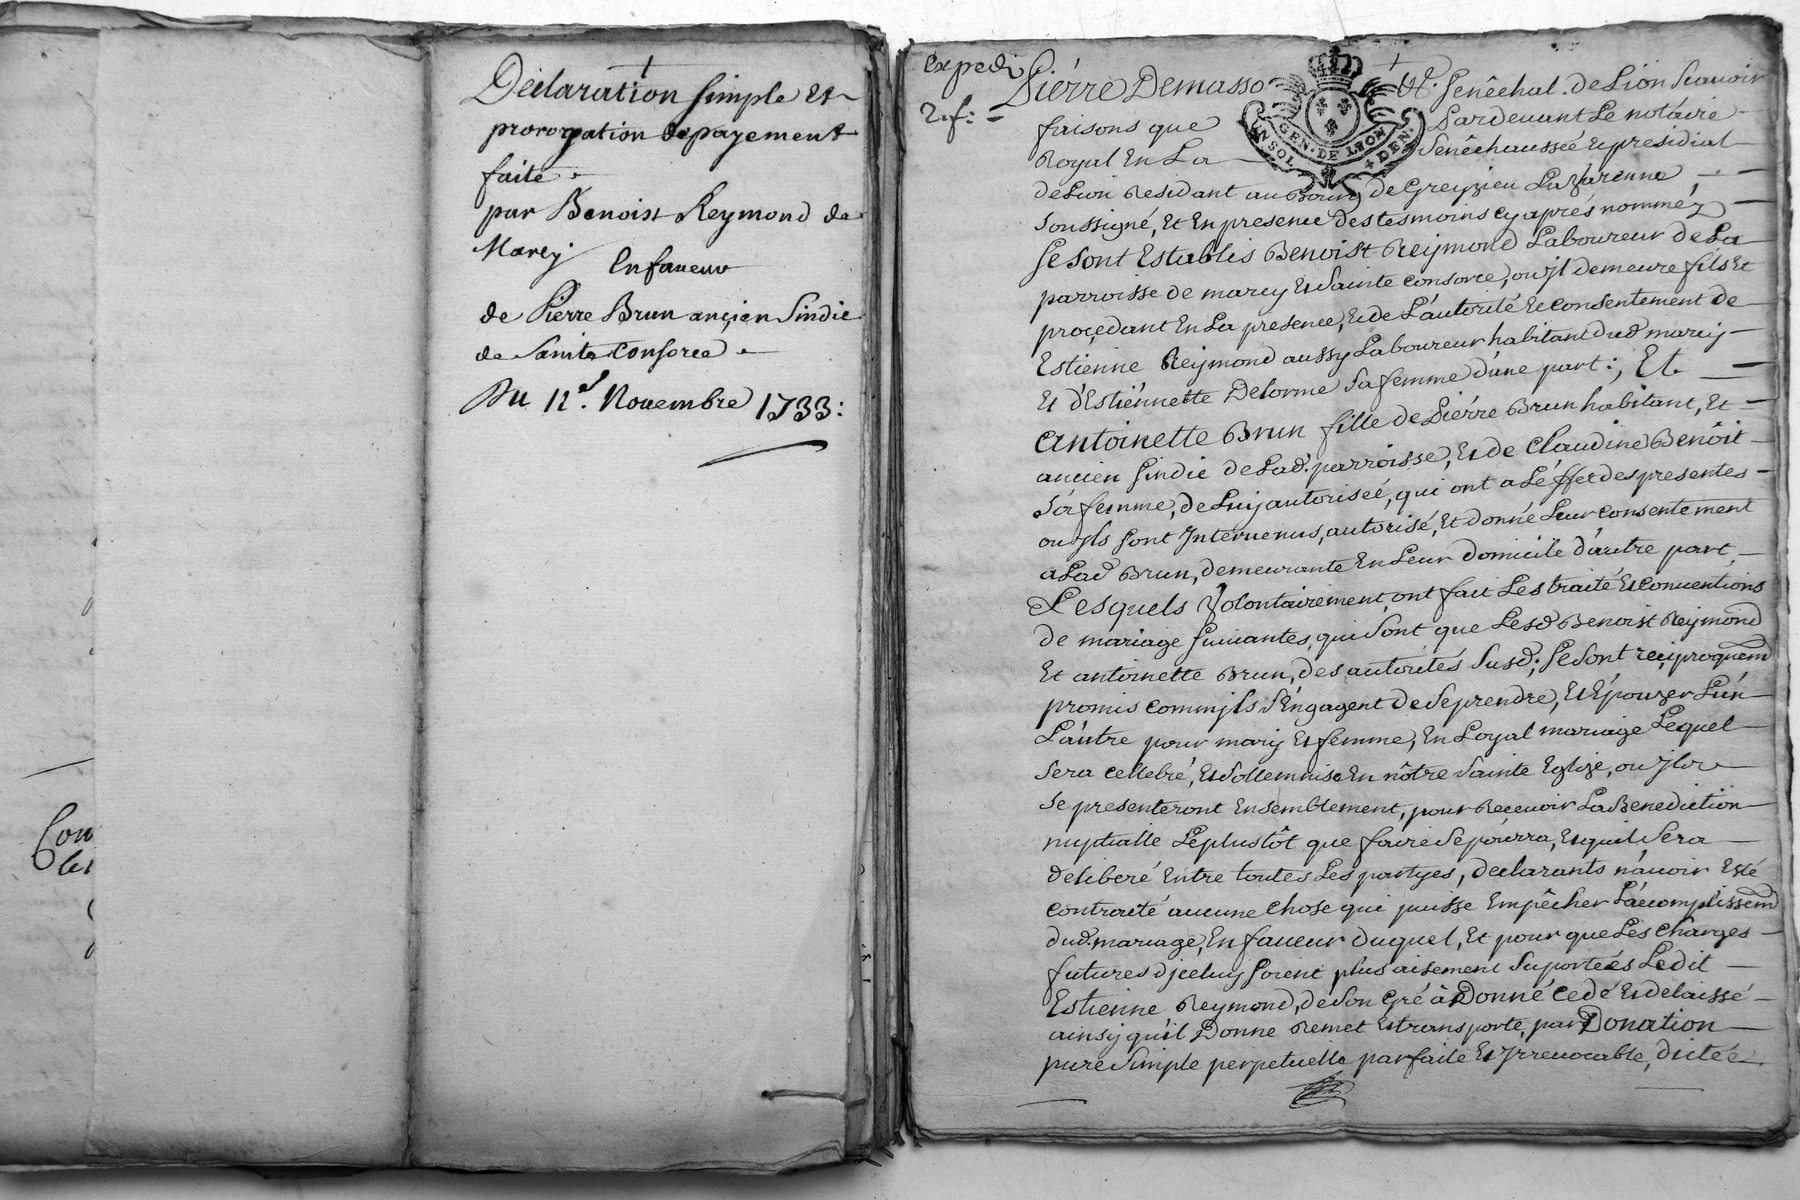 Con
Déclaration simple Et
prorogation de payement
faite
par Benoist Reymond de
Marcy
En faueur
de Pierre Brun ancien Sindic
de Sainte Consorce
Du 12e. Nouembre 1733:
expedié
2. f:
Piérre Demasso Sr. Senêchal de Lion Scauoir
faisons que Pardeuant Le notaire
Royal En La Senêchaussée Et presidial
de Lion Residant au Bourg de Greyzieu La Varenne
GEN. DE LYON
Soussigné, Et En presence des tesmoins cy aprés nomméz
se sont Establis Benoist Reymond Laboureur de La
parroisse de marcy Et Sainte consorce, ou jl demeure fils Et
proçedant En La presence, Et de L'autorité Et consentement de
Estienne Reymond aussy Laboureur habitant dud marcy
Et d'Estiénnette Delorme sa femme d'une part; Et
Antoinette Brun fille de Piérre Brun habitant, Et
ancien sindic de Lad. parroisse, Et de Claudine Benôit
sa femme, de Luy autoriseé, qui ont a L'éffet des presentes
ou jls sont Interuenus, autorisé, Et donné Leur consentement
a Lad Brun, demeurante En Leur domicile d'autre part
Lesquels Volontairement, ont fait Les traité Et conuentions
de mariage suiuantes, qui sont que Lesd Benoist Reymond
Et antoinette Brun, des autorités susd; se sont reçiproquem
promis comm jls s'Engagent de se prendre, Et Épouzer L'un
L'autre pour mary Et femme, En Loyal mariage Lequel
sera cellebré, Et sollemnise En nôtre Sainte Eglize, ou jls
se presenteront Ensemblement, pour Receuoir La Benediction
nuptialle Le plustôt que faire se poúrra, Et quil sera
deliberé Entre toutes Les partyes, declarants n'auoir Esté
contracté aucune chose qui puisse Empêcher L'accomplissem
dud. mariage, En faueur duquel, Et pour que Les charges
futures d'jceluy soient plus aisement suportées Ledit
Estienne Reymond, de son gré â Donné cedé Et delaissé
ainsy qu'il Donne Remet Et transporte, par Donation
pure simple perpetuelle parfaite Et Jrreuocable, dictée